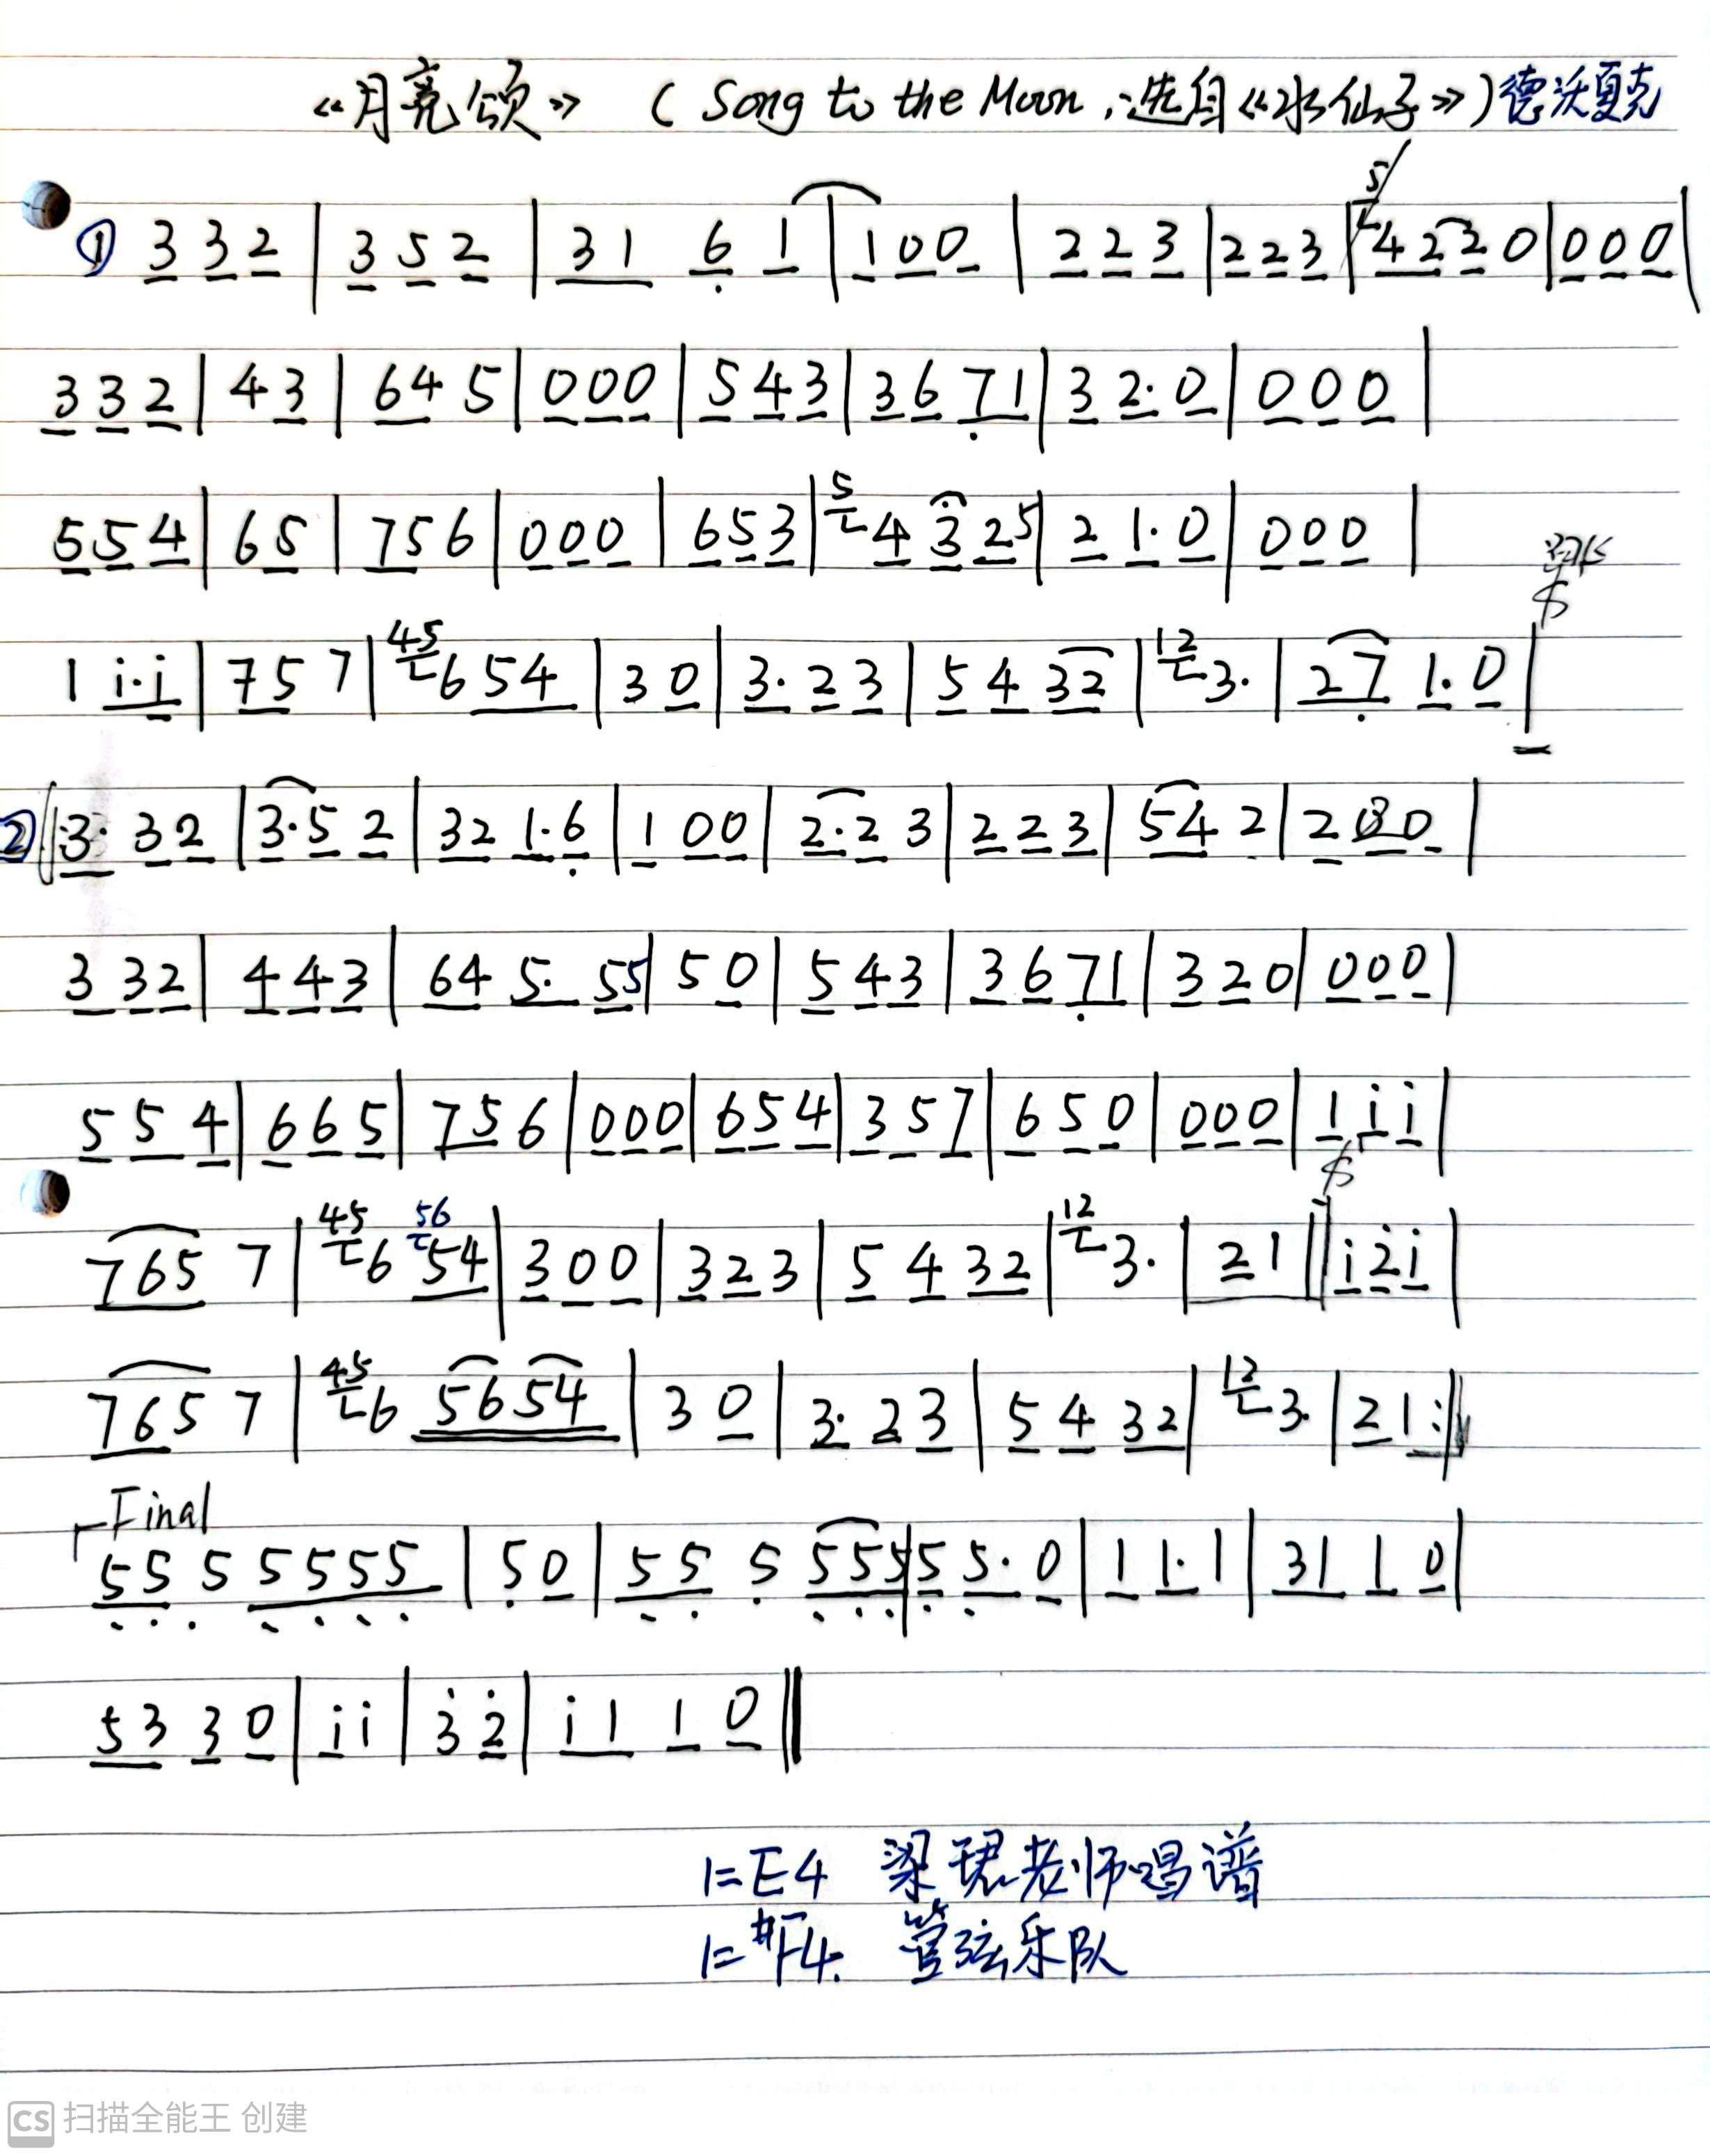 《月亮颂》 (Song to the Moon,选自《水仙子》)德沃夏克
5
① 3 3 2 | 3 5 2 | 3 1 6̣ 1 | 1 0 0 | 2 2 3 | 2 2 3 | 4 2 2 0 | 0 0 0 |
3 3 2 | 4 3 | 6 4 5 | 0 0 0 | 5 4 3 | 3 6 7̣ 1 | 3 2· 0 | 0 0 0 |
5 5 4 | 6 5 | 7 5 6 | 0 0 0 | 6 5 3 | 5 4 3 2 5 | 2 1· 0 | 0 0 0 |
1 i· i | 7 5 7 | 45 6 5 4 | 3 0 | 3· 2 3 | 5 4 3 2 | 12 3· | 2 7̣ 1· 0 |
② |: 3· 3 2 | 3· 5 2 | 3 2 1· 6̣ | 1 0 0 | 2· 2 3 | 2 2 3 | 5 4 2 | 2 0 0 |
3 3 2 | 4 4 3 | 6 4 5· 5 5 | 5 0 | 5 4 3 | 3 6 7̣ 1 | 3 2 0 | 0 0 0 |
5 5 4 | 6 6 5 | 7 5 6 | 0 0 0 | 6 5 4 | 3 5 7 | 6 5 0 | 0 0 0 | 1 i i |
7 6 5 7 | 45 6 56 5 4 | 3 0 0 | 3 2 3 | 5 4 3 2 | 12 3· | 2 1 || i 2̇ i |
7 6 5 7 | 45 6 5 6 5 4 | 3 0 | 3· 2 3 | 5 4 3 2 | 12 3· | 2 1 :||
Final
5̣ 5̣ 5̣ 5̣ 5̣ 5̣ 5̣ | 5̣ 0 | 5̣ 5̣ 5̣ 5̣ 5̣ 5̣ | 5̣ 5̣· 0 | 1 1· 1 | 3 1 1 0 |
5 3 3 0 | i i | 3̇ 2̇ | i 1 1 0 ||
1=E4 梁珺老师唱谱
1=#F4. 管弦乐队
CS 扫描全能王 创建